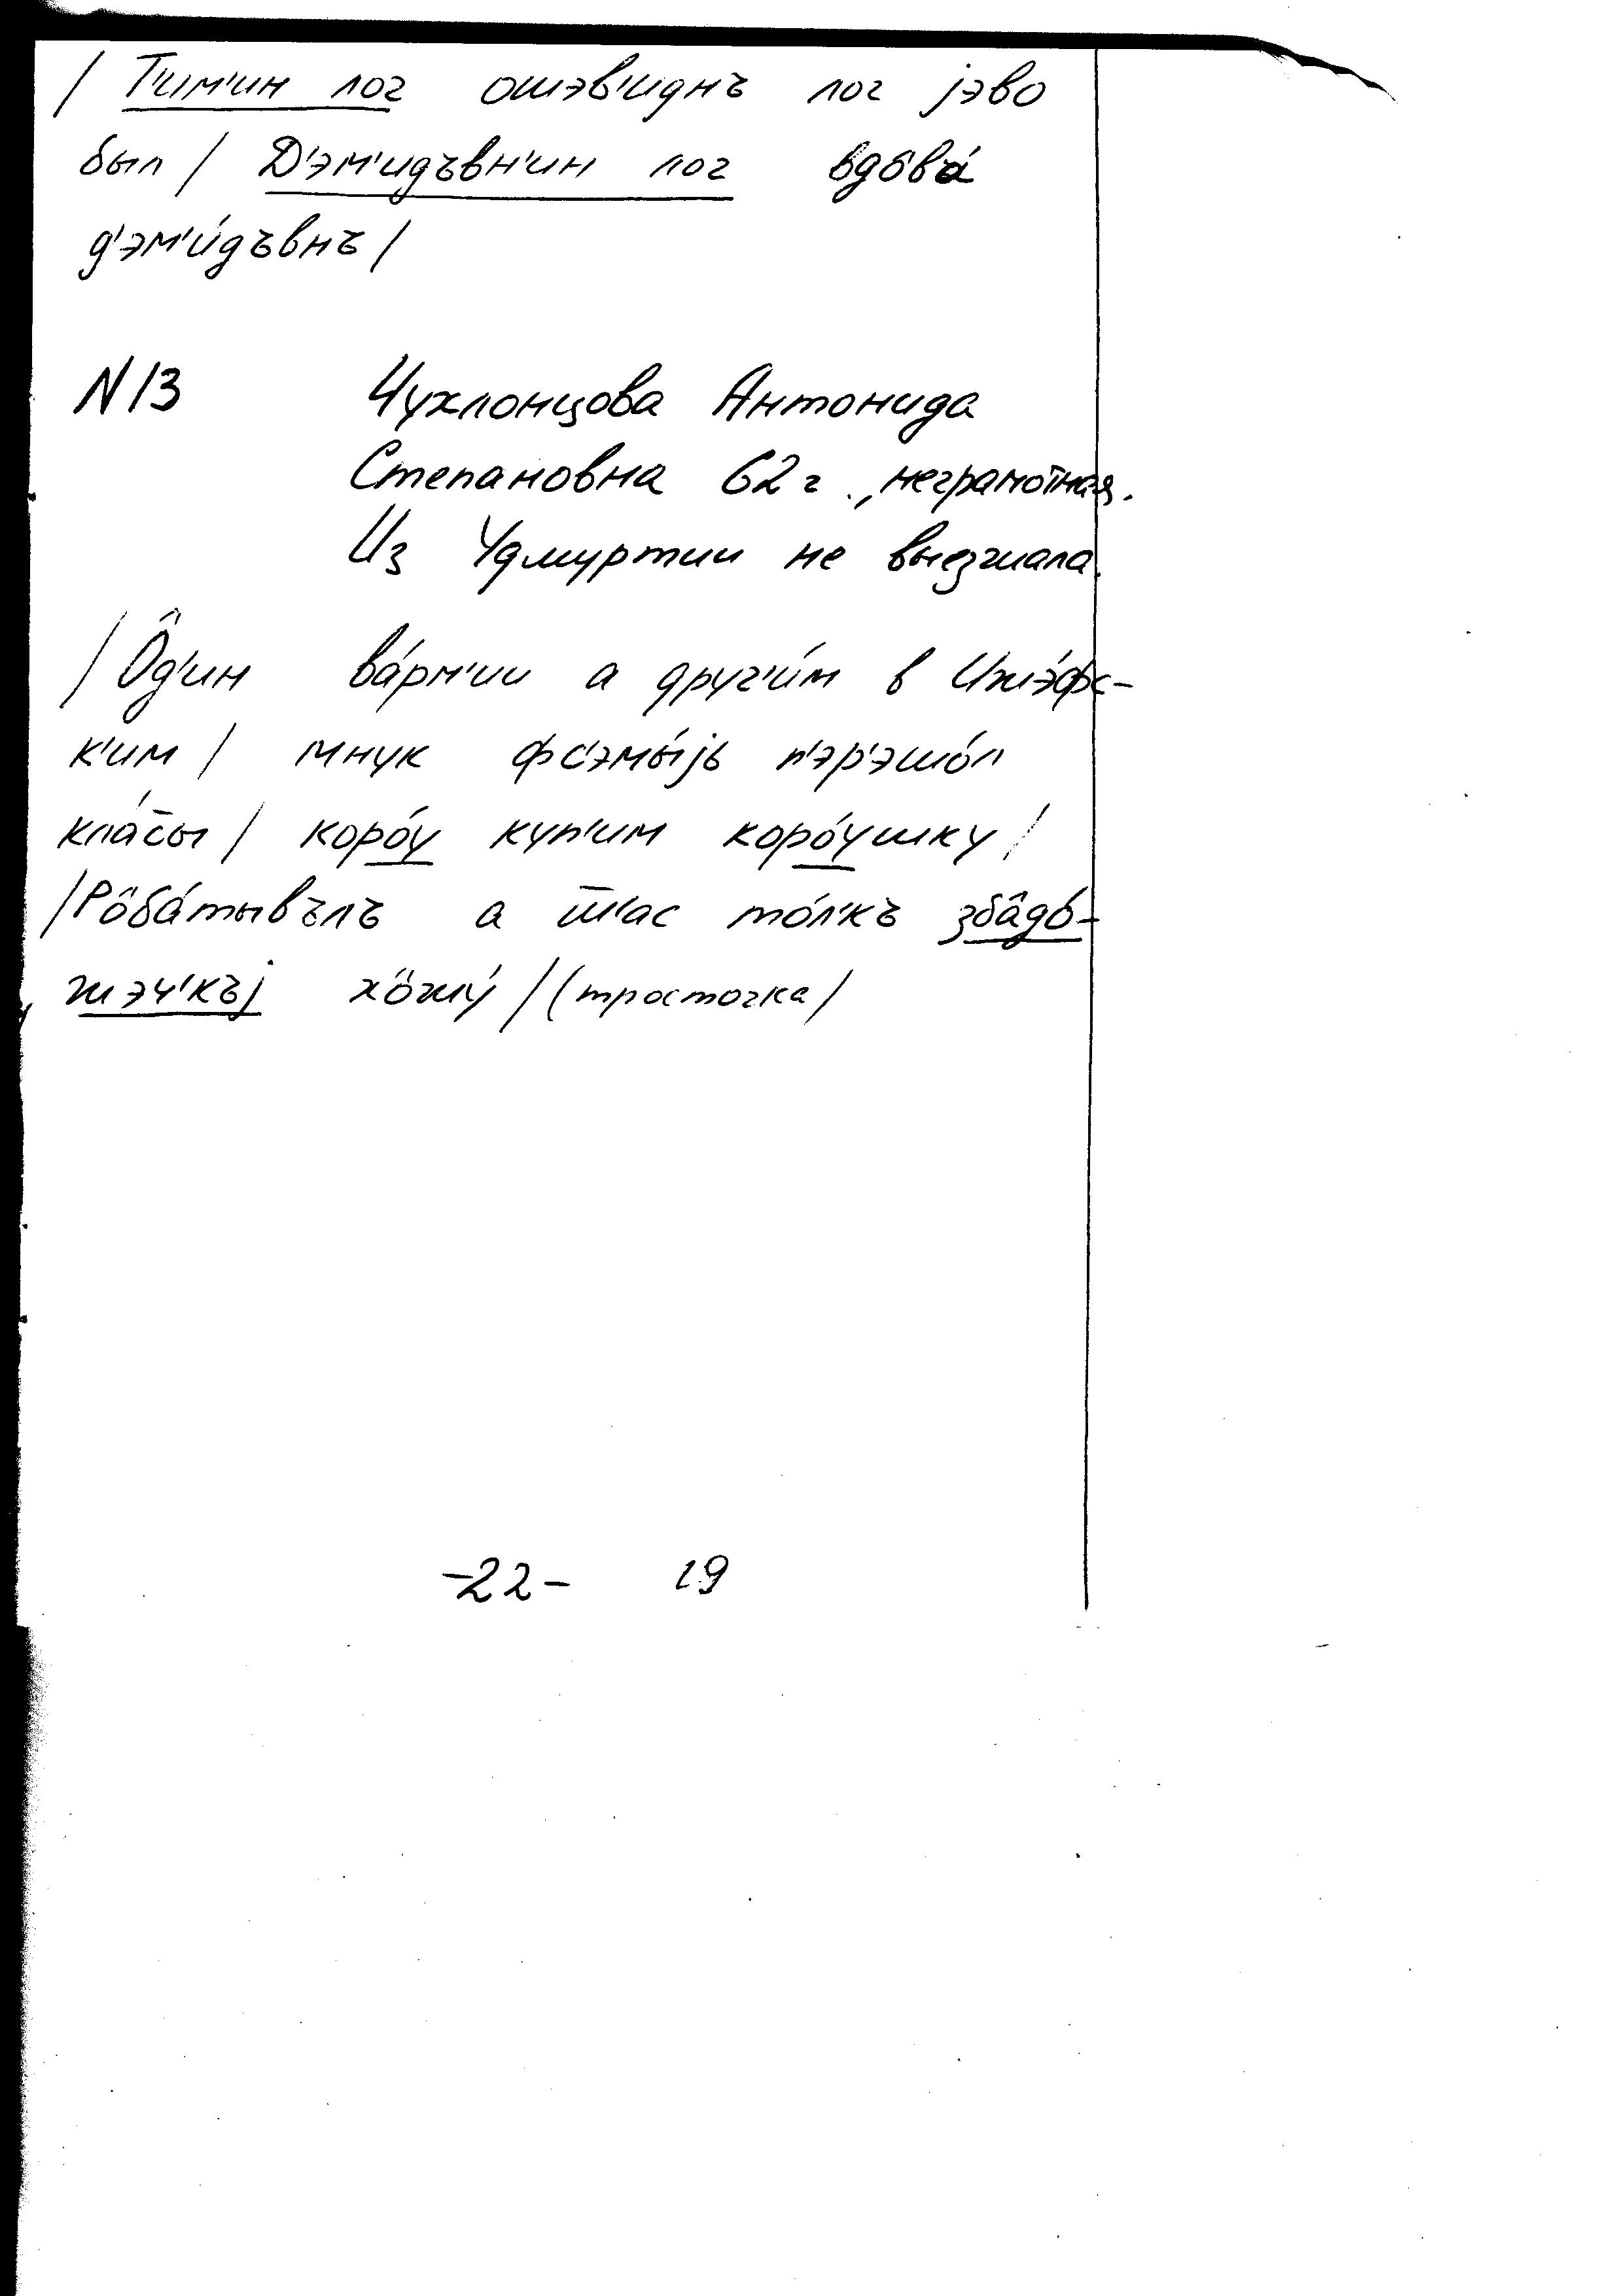 / Т'им'ин лог ошэв'иднъ лог јэво
был / Д'эм'идъвн'ин лог вдова́
д'эм'и́дъвнъ /
N 13 Чухлонцова Антонида
Степановна 62 г., неграмотная.
Из Удмуртии не выезжала.
/ О̂д'ин ва́рм'ии а друг'и́м в Ижэ́фс-
к'им / мнук фс'эмы́јь п'эр'эшо́л
кла́с̄ы / коро́у куп'им коро́ушку /
/ Ро̂ба́тывълъ а т̄ш'ас то́л'къ зба̂до-
жэч'къј хо̂жу́ / (тросточка /
-22- 19